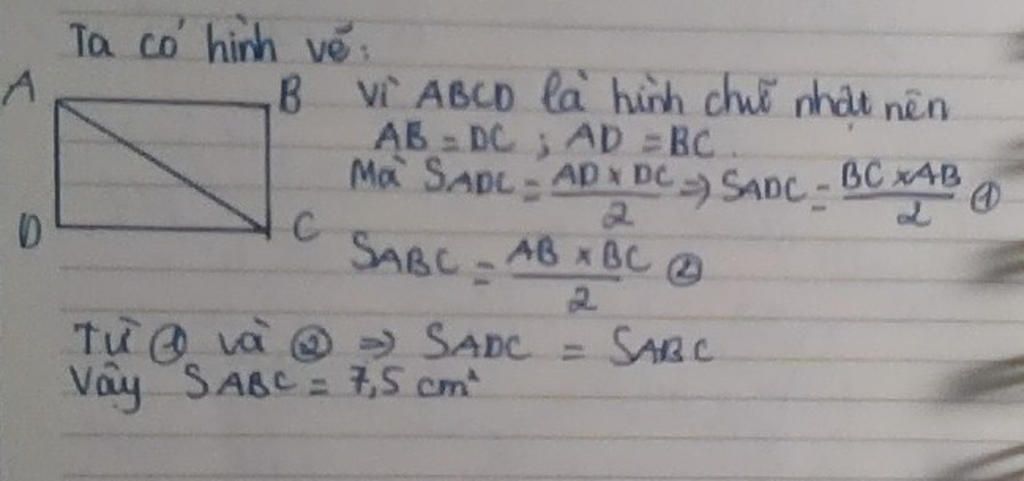 Ta có hình vẽ:
A
B
D
C
Vì ABCD là hình chữ nhật nên
AB = DC ; AD = BC.
Mà SADC = AD × DC / 2 ⇒ SADC = BC × AB / 2 ①
SABC = AB × BC / 2 ②
Từ ① và ② ⇒ SADC = SABC
Vậy SABC = 7,5 cm²